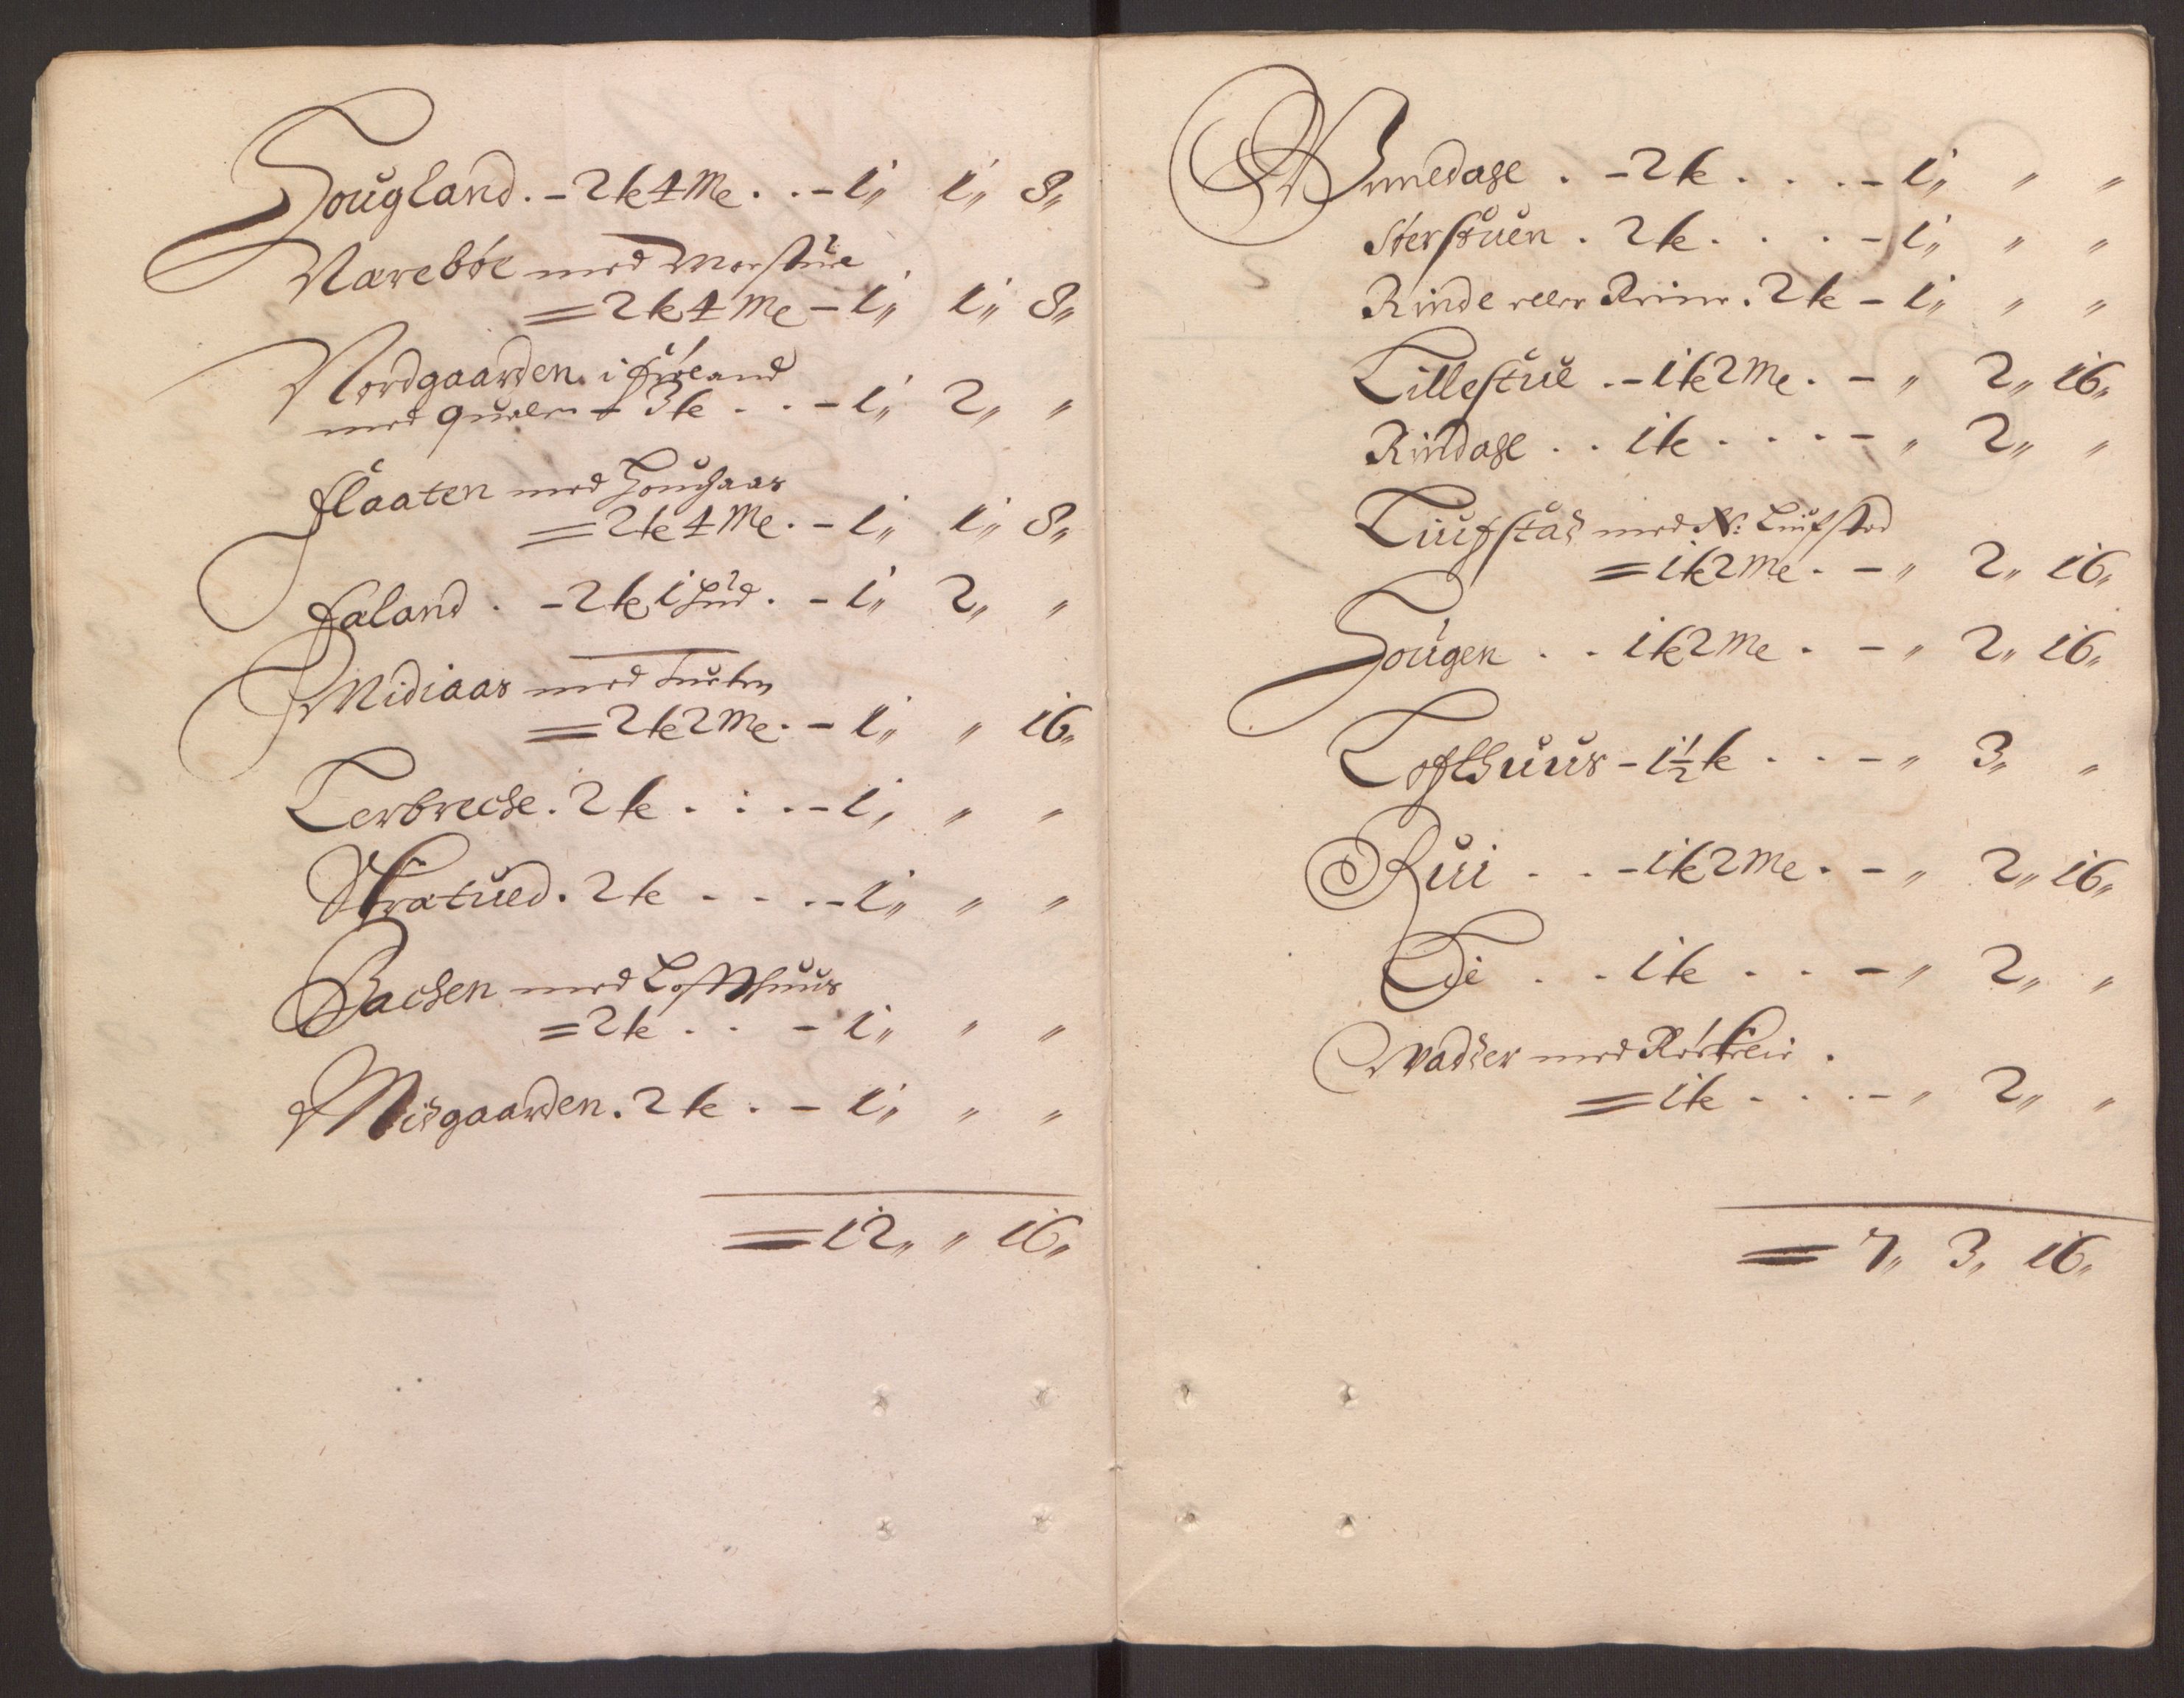 Hougland . - 2 k 4 Mk . . - 1„ 1„ 8„
Narebøe med Morstue
= 2 k 4 Mk - 1„ 1„ 8„
Nordgaarden i
med - 3 k . . - 1„ 2„ „
Flaaten med Houghaas
= 2 k 4 Mk . - 1„ 1„ 8„
Faland . - 2 k 1 hud . - 1„ 2„ „
Midiaas med
= 2 k 2 Mk . - 1„ „ 16„
Lerbreche . 2 k . . . - 1„ „ „
Stratued . 2 k . . . - 1„ „ „
Bachen med Lofthuus
= 2 k . . - 1„ „ „
Midgaarden . 2 k . - 1„ „ „
= 12„ „ 16„
Unnedahl . - 2 k . . . - 1„ „ „
Størstuen . 2 k . . . - 1„ „ „
Rinde eller . 2 k - 1„ „ „
Lillestue . - 1 k 2 Mk . - „ 2„ 16„
Rindahl . . 1 k . . . - „ 2„ „
Liufstad med N: Liufstad
= 1 k 2 Mk . - „ 2„ 16„
Hougen . . 1 k 2 Mk . - „ 2„ 16„
Lofthuus - 1½ k . . - „ 3„ „
Rui . . - 1 k 2 Mk . - „ 2„ 16„
Lie . . 1 k . . - „ 2„ „
Vadder med .
= 1 k . . . - „ 2„ „
= 7„ 3„ 16„